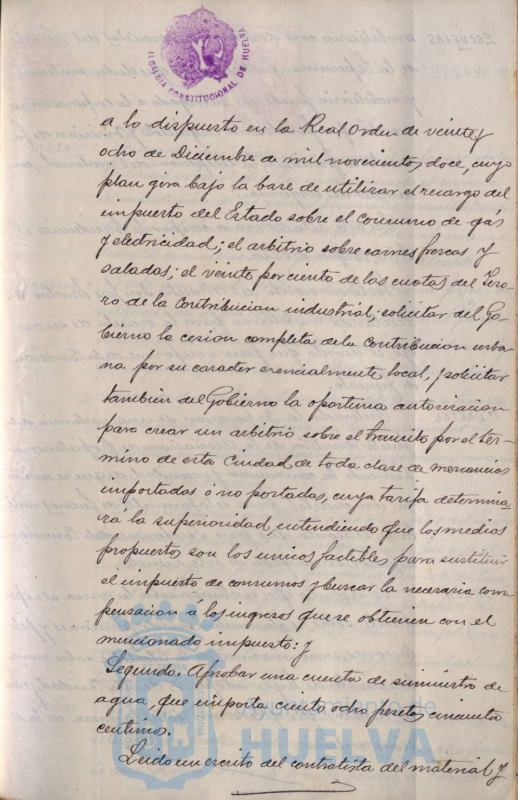 ALCALDIA CONSTITUCIONAL DE HUELVA
a lo dispuesto en la Real Orden de veinte y
ocho de Diciembre de mil novecientos doce, cuyo
plan gira bajo la base de utilizar el recargo del
impuesto del Estado sobre el consumo de gás
y electricidad; el arbitrio sobre carnes frescas y
saladas; el veinte por ciento de las cuotas del Teso-
ro de la Contribucion industrial; solicitar del Go-
bierno la cesion completa de la Contribucion urba-
na por su caracter esencialmente local, y solicitar
tambien del Gobierno la oportuna autorizacion
para crear un arbitrio sobre el transito por el tér-
mino de esta Ciudad de toda clase de mercancias
importadas ó no portadas, cuya tarifa determina-
rá la superioridad, entendiendo que los medios
propuestos son los unicos factibles para sustituir
el impuesto de consumos y buscar la necesaria com-
pensacion á los ingresos que se obtienen con el
mencionado impuesto: y
Segundo. Aprobar una cuenta de suministro de
agua, que importa ciento ocho pesetas cincuenta
centimos.
Leido un escrito del contratista del material y
Ayuntamiento de
HUELVA